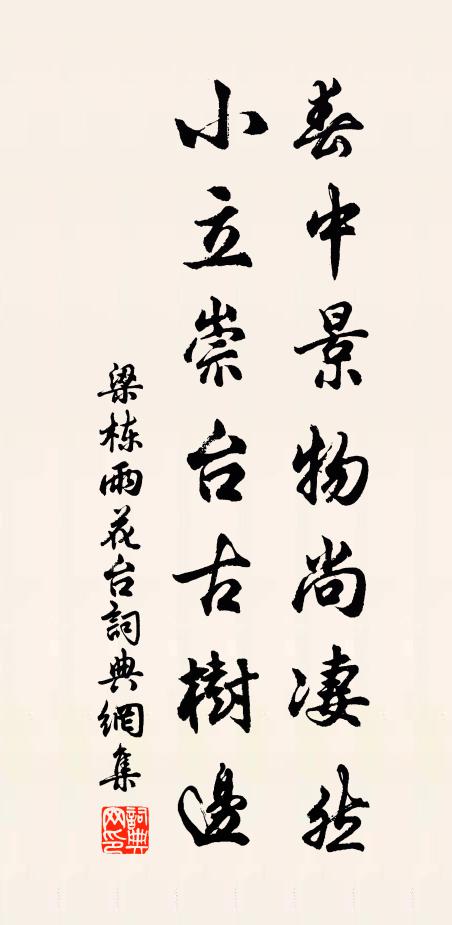 春中景物尚凄然
小立崇台古樹邊
梁栋雨花台詞典網集
詞典
网印